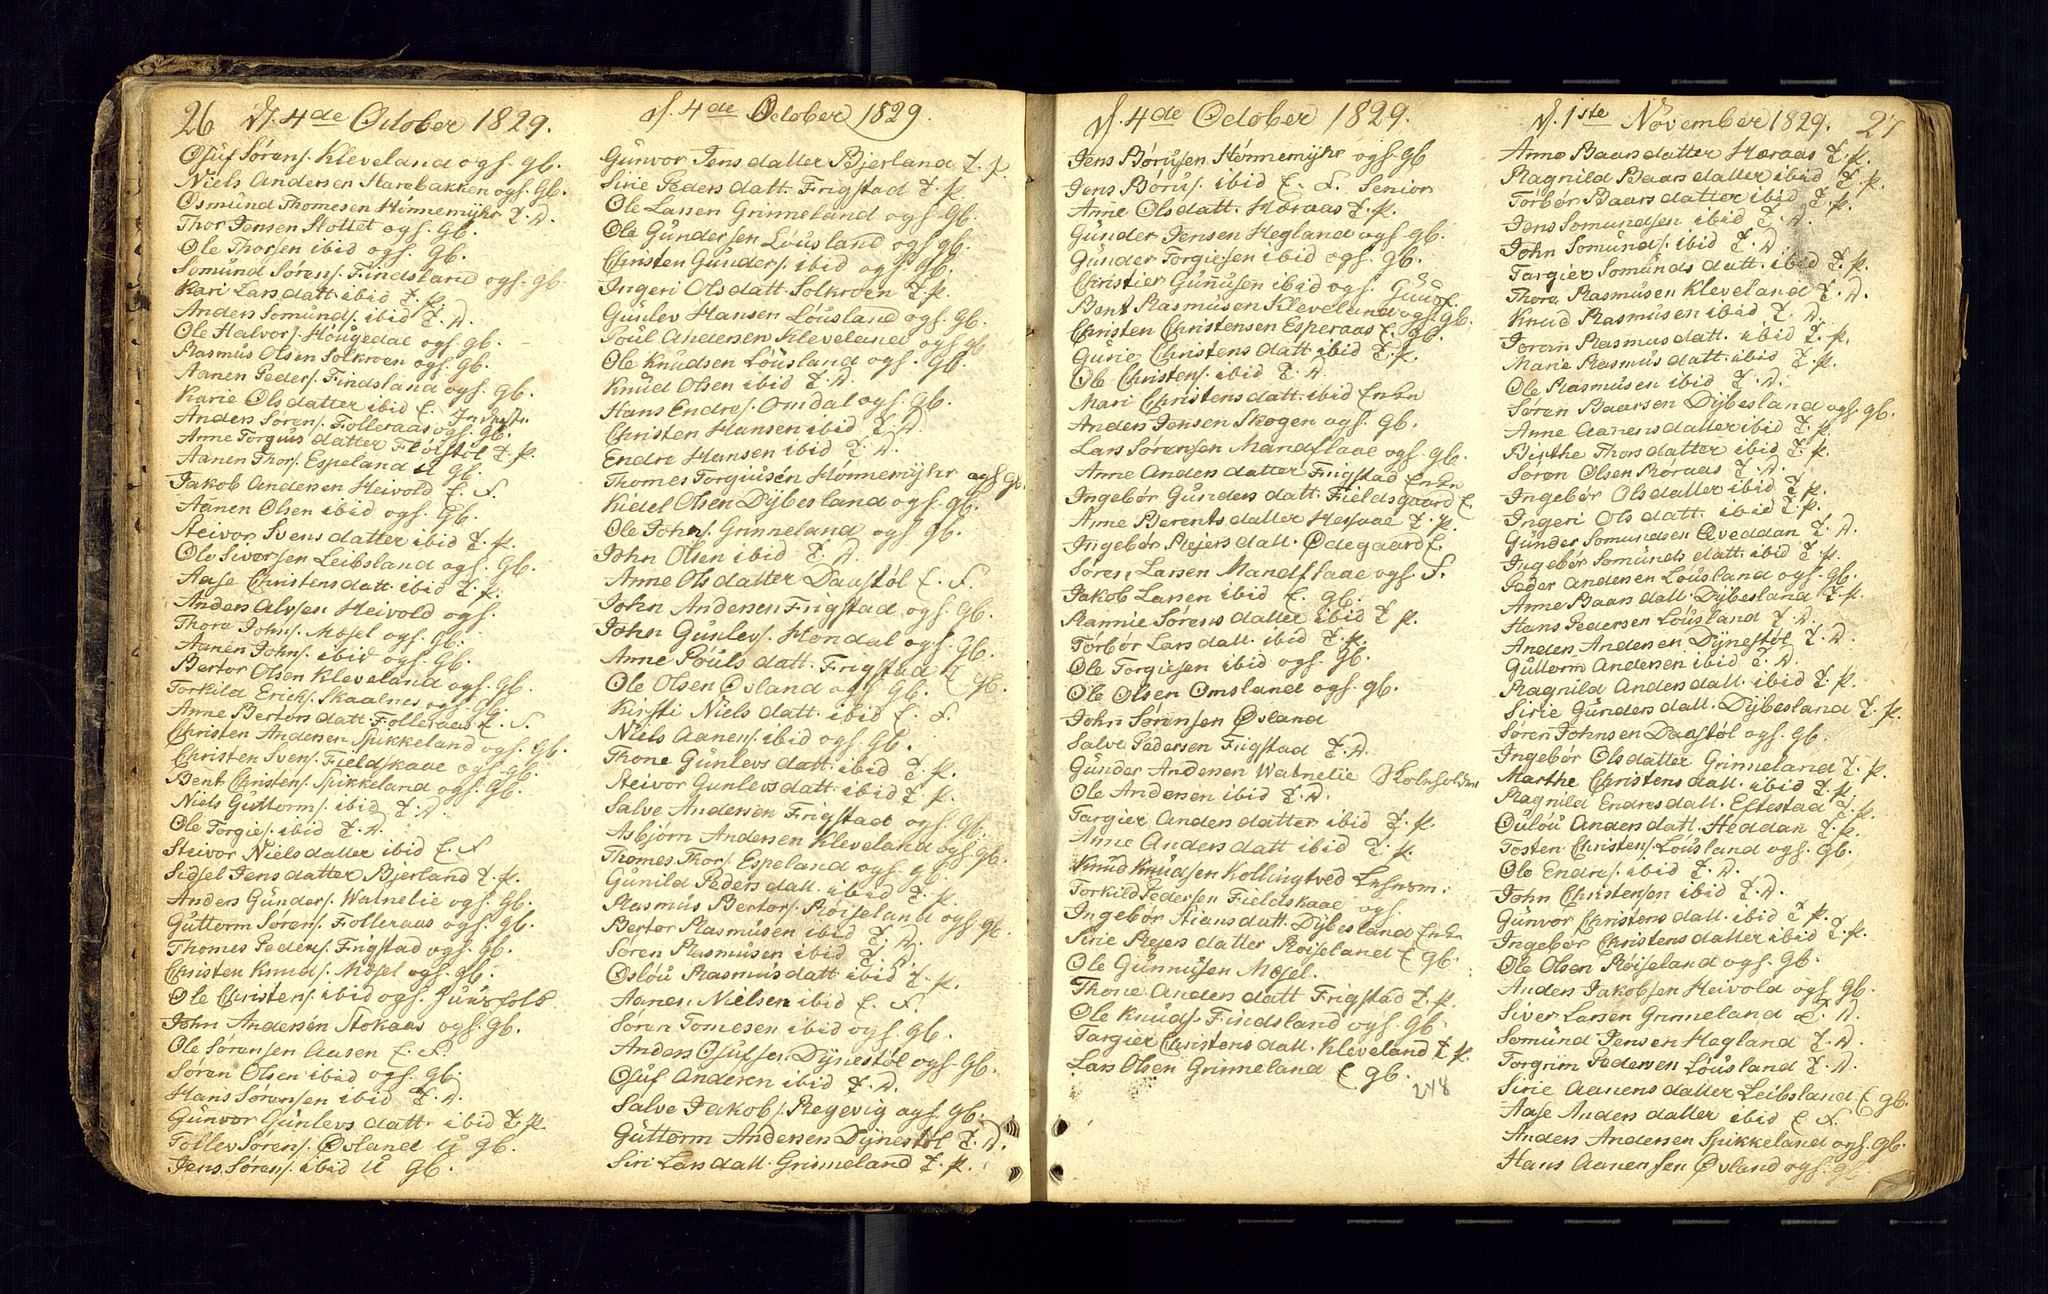 26 D. 4de October 1829.
Osuf Sørens. Kleveland ogs. gb.
Niels Andersen Harebakken ogs. gb.
Osmund Thomesen Hinnemyhr T. D.
Thor Jensen Stollet ogs. gb.
Ole Thorsen ibid ogs. gb.
Somund Sørens. Findsland ogs. gb.
Kari Larsdatt. ibid T. P.
Anders Somunds. ibid T. D.
Ole Halvors. Hougedae ogs. gb.
Rasmus Olsen Solkroen ogs. gb.
Aanen Peders. Findsland ogs. gb.
Karie Olsdatter ibid E.
Anders Sørens. Folleraas ogs. gb.
Anne Torguusdatter Fløistøl T. P.
Aanen Thors. Espeland U gb.
Jakob Andersen Heivold E. F.
Aanen Olsen ibid ogs. gb.
Steivor Svensdatter ibid T. P.
Ole Sivorsen Leibsland ogs. gb.
Aase Christensdatt. ibid T. P.
Anders Alvsen Heivold ogs.
Thore Johns. Mosel ogs. gb.
Aanen Johns. ibid ogs. gb.
Bertor Olsen Kleveland ogs. gb.
Torkild Erichs. Skaalnes ogs. gb.
Anne Bertorsdatt Folleraas E. F.
Christen Andersen Spikkeland ogs. gb.
Christen Svens. Fieldskaae ogs. gb.
Bent Christens. Spikkeland ogs. gb.
Niels Guttorms. ibid T. D.
Ole Torgies. ibid T. D.
Steivor Nielsdatter ibid E. F.
Sidsel Jensdatter Bjerland T. P.
Anders Gunders. Watnelie ogs. gb.
Guttorm Sørens. Folleraas ogs. gb.
Thomes Peders. Frigstad ogs. gb.
Christen Knuds. Mosel ogs. gb.
Ole Christens. ibid ogs. Huusfolk
John Andersen Stokaas ogs. gb.
Ole Sørensen Aasen E. F.
Søren Olsen ibid ogs. gb.
Hans Sørensen ibid T. D.
Gunvor Gunlevsdatt. ibid T. P.
Tollev Sørens. Øvland U gb.
Jens Sørens. ibid U gb.
D. 4de October 1829.
Gunvor Jensdatter Bjerland T. P.
Sirie Pedersdatt. Frigstad T. P.
Ole Larsen Grinneland ogs. gb.
Ole Gundersen Lousland ogs. gb.
Christen Gunders. ibid ogs. gb.
Ingeri Olsdatt. Solkroen T. P.
Gunlev Hansen Lousland ogs. gb.
Poul Andersen Kleveland ogs gb
Ole Knudsen Lousland ogs. gb.
Knud Olsen ibid T. D.
Hans Endres. Omdal ogs. gb.
Christen Hansen ibid T. D.
Endre Hansen ibid T. D.
Thomes Torgiusen Hønnemyhr ogs gb.
Kidel Olsen Dybesland ogs. gb.
Ole Johns. Grinneland ogs gb.
John Olsen ibid T. D.
Anne Olsdatter Daastøl E. F.
John Andersen Frigstad ogs. gb.
John Gunlevs. Homdal ogs. gb.
Anne Poulsdatt. Frigstad
Ole Olsen Øvland ogs. gb. E gb.
Kirsti Nielsdatt. ibid E. F.
Niels Aanens. ibid ogs. gb.
Thone Gunlevsdatt. ibid T. P.
Steivor Gunlevsdatt. ibid T. P.
Salve Andersen Frigstad ogs. gb.
Asbjørn Andersen Kleveland ogs. gb.
Thomes Thors. Espeland ogs. gb.
Gunild Pedersdatt. ibid T. P.
Rasmus Bertors. Røiseland ogs. gb.
Bertor Rasmusen ibid T. D.
Søren Rasmusen ibid T. D.
Oslou Rasmusdatt ibid T. P.
Aanen Nielsen ibid E. F.
Søren Tomesen ibid ogs. gb.
Anders Osufsen Dynestøl ogs. gb.
Osuf Andersen ibid T. D.
Salve Jakobs. Regevig ogs. gb.
Guttorm Andersen Dynestøl T. D.
Siri Larsdatt. Grinneland T. P.
D. 4de October 1829.
Jens Børusen Hønnemyhr ogs. gb
Jens Børus. ibid E. F. Senior
Anne Olsdatt. Høraas T. P.
Gunder Jensen Hegland ogs. gb.
Gunder Torgiesen ibid ogs. gb.
Christier Gunusen ibid ogs.
Bent Rasmusen Kleveland ogs. gb.
Christen Christensen Esperaas E. gb.
Gurie Christensdatt. ibid T. P.
Ole Christens. ibid T. D.
Mari Christensdatt. ibid Enkn
Anders Jensen Skogen ogs. gb.
Lars Sørensen Mandflaae ogs. gb.
Anne Andersdatter Frigstad Enkn
Ingebør Gundersdatt. Fieldsgaard E.
Anne Berentsdatter Hessaae T. P.
Ingebør Rejersdatt. Ødegaard E.
Søren Larsen Mandflaae ogs. F.
Jakob Larsen ibid E. gb.
Rannie Sørensdatter ibid T. P.
Torbør Larsdatt. ibid T. P.
Ole Torgiesen ibid ogs. gb.
Ole Olsen Omsland ogs. gb.
John Sørensen Øvland
Salve Pedersen Frigstad T. D.
Gunder Andersen Watnelie Skoleholder
Ole Andersen ibid T. D.
Targier Andersdatter ibid T. P.
Anne Andersdatt ibid T. P.
Knud Knudsen Kollingtved Lehnsm.
Torkild Pedersen Fieldskaae ogs.
Ingebør Stiansdatt. Dybesland Enkn
Sirie Rejersdatter Røiseland E gb.
Ole Gunnusen Mosel.
Thone Andersdatt Frigstad T. P.
Ole Knuds. Findsland ogs. gb.
Targier Christensdatt. Kleveland T. P.
Lars Olsen Grinneland E gb.
248
D. 1ste November 1829. 27
Anne Baarsdatter Høraas T. P.
Magnild Baarsdatter ibid T. P.
Torbør Baarsdatter ibid T. P.
Jens Somundsen ibid T. D.
John Somunds. ibid T. D.
Targier Somundsdatt. ibid T. P.
Thore Rasmusen Kleveland T. D.
Knud Rasmusen ibid T. D.
Joran Rasmusdatt. ibid T. P.
Marie Rasmusdatt. ibid T. P.
Ole Rasmusen ibid T. D.
Søren Baarsen Dybesland ogs. gb.
Anne Aanensdatter ibid T. P.
Birthe Thorsdatter ibid T. P.
Søren Olsen Roraas T. D.
Ingebør Olsdatter ibid T. P.
Ingeri Olsdatt. ibid T. P.
Gunder Somundsen Qveddan T. D.
Ingebør Somundsdatt. ibid T. P.
Peder Andersen Lousland ogs. gb.
Anne Baarsdatt. Dybesland T. P.
Hans Pedersen Lousland T. D.
Anders Andersen Dynestøl T. D.
Guttorm Andersen ibid T. D.
Magnild Andersdatt. ibid T. P.
Sirie Gundersdatt. Dybesland T. P.
Søren Johnsen Daastøl ogs. gb.
Ingebør Olsdatter Grinneland T. P.
Marthe Christensdatt. ibid T. P.
Magnild Endresdatt. Eftestad T. P.
Oulou Andersdatt. Heddan T. P.
Tosten Christens. Lousland ogs. gb.
Ole Endres. ibid T. D.
John Christensen ibid T. D.
Gunvor Christensdatt. ibid T. P.
Ingebør Christensdatter ibid T. P.
Ole Olsen Røiseland ogs. gb.
Anders Jakobsen Heivold ogs. gb.
Siver Larsen Grinneland T. D.
Somund Jensen Hegland T. D.
Torgrim Pedersen Lousland T. D.
Sirie Aanensdatter Leibsland E gb.
Aase Andersdatter ibid E. F.
Anders Andersen Spikkeland ogs. gb.
Hans Aanensen Øvland ogs. gb.